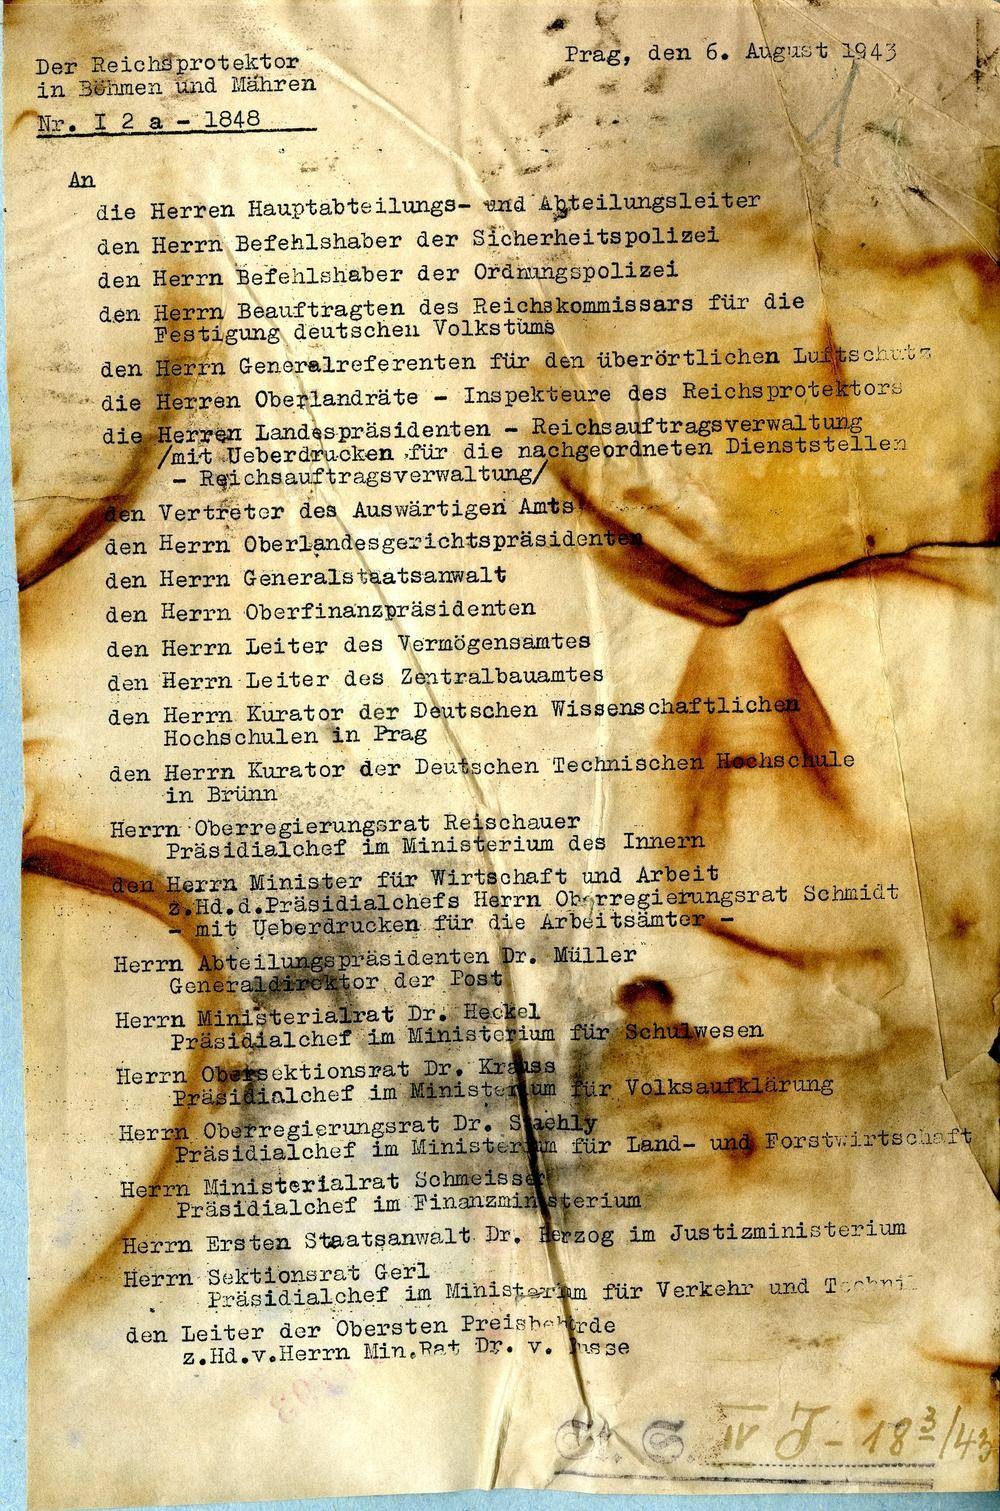 Der Reichsprotektor
in Böhmen und Mähren
Nr. I 2 a - 1848
Prag, den 6. August 1943
An
die Herren Hauptabteilungs- und Abteilungsleiter
den Herrn Befehlshaber der Sicherheitspolizei
den Herrn Befehlshaber der Ordnungspolizei
den Herrn Beauftragten des Reichskommissars für die
Festigung deutschen Volkstums
den Herrn Generalreferenten für den überörtlichen Luftschutz
die Herren Oberlandräte - Inspekteure des Reichsprotektors
die Herren Landespräsidenten - Reichsauftragsverwaltung
/mit Ueberdrucken für die nachgeordneten Dienststellen
- Reichsauftragsverwaltung/
den Vertreter des Auswärtigen Amts
den Herrn Oberlandesgerichtspräsidenten
den Herrn Generalstaatsanwalt
den Herrn Oberfinanzpräsidenten
den Herrn Leiter des Vermögensamtes
den Herrn Leiter des Zentralbauamtes
den Herrn Kurator der Deutschen Wissenschaftlichen
Hochschulen in Prag
den Herrn Kurator der Deutschen Technischen Hochschule
in Brünn
Herrn Oberregierungsrat Reischauer
Präsidialchef im Ministerium des Innern
den Herrn Minister für Wirtschaft und Arbeit
z.Hd.d.Präsidialchefs Herrn Oberregierungsrat Schmidt
- mit Ueberdrucken für die Arbeitsämter -
Herrn Abteilungspräsidenten Dr. Müller
Generaldirektor der Post
Herrn Ministerialrat Dr. Heckel
Präsidialchef im Ministerium für Schulwesen
Herrn Obersektionsrat Dr. Krauss
Präsidialchef im Ministerium für Volksaufklärung
Herrn Oberregierungsrat Dr.
Präsidialchef im Ministerium für Land- und Forstwirtschaft
Herrn Ministerialrat Schmeisser
Präsidialchef im Finanzministerium
Herrn Ersten Staatsanwalt Dr. Herzog im Justizministerium
Herrn Sektionsrat Gerl
Präsidialchef im Ministerium für Verkehr und Technik
den Leiter der Obersten Preisbehörde
z.Hd.v.Herrn Min.Rat Dr. v.
St. S. IV J - 18 3/43